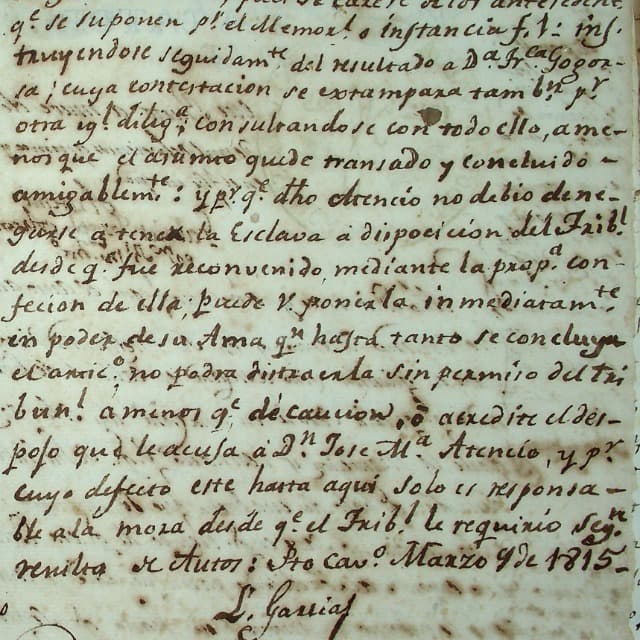 se carese de los antesedent
q.e se suponen p.r el Memor.l o instancia f. 1.a ins,
truyendose seguidam.te del resultado a D.a Fr.ca Gogor-
sa; cuya contestacion se extampara tamb.n p.r
otra ig.l dilig.a; consultandose con todo ello, a me-
nos que el asunto quede transado y concluido -
amigablem.te: y p.r q.e dho Atencio no debio dene-
garse a tener la Esclava a disposicion del Trib.l
desde q.e fue reconvenido, mediante la prop.a con-
fecion de ella, puede V. ponerla inmediatam.te
en poder de su Ama q.n hasta tanto se concluya
el artic.o no podra distraerla sin permiso del tri
bun.l a menos q.e dé caucion, ó acredite el des-
pojo que le acusa a D.n Jose M.a Atencio, y p.r
cuyo defecto este hasta aqui solo es responsa-
ble a la mora desde q.e el Trib.l le requirio seg.n
resulta de Autos: Pto Cav.o Marzo 9 de 1815-
L. Garcias